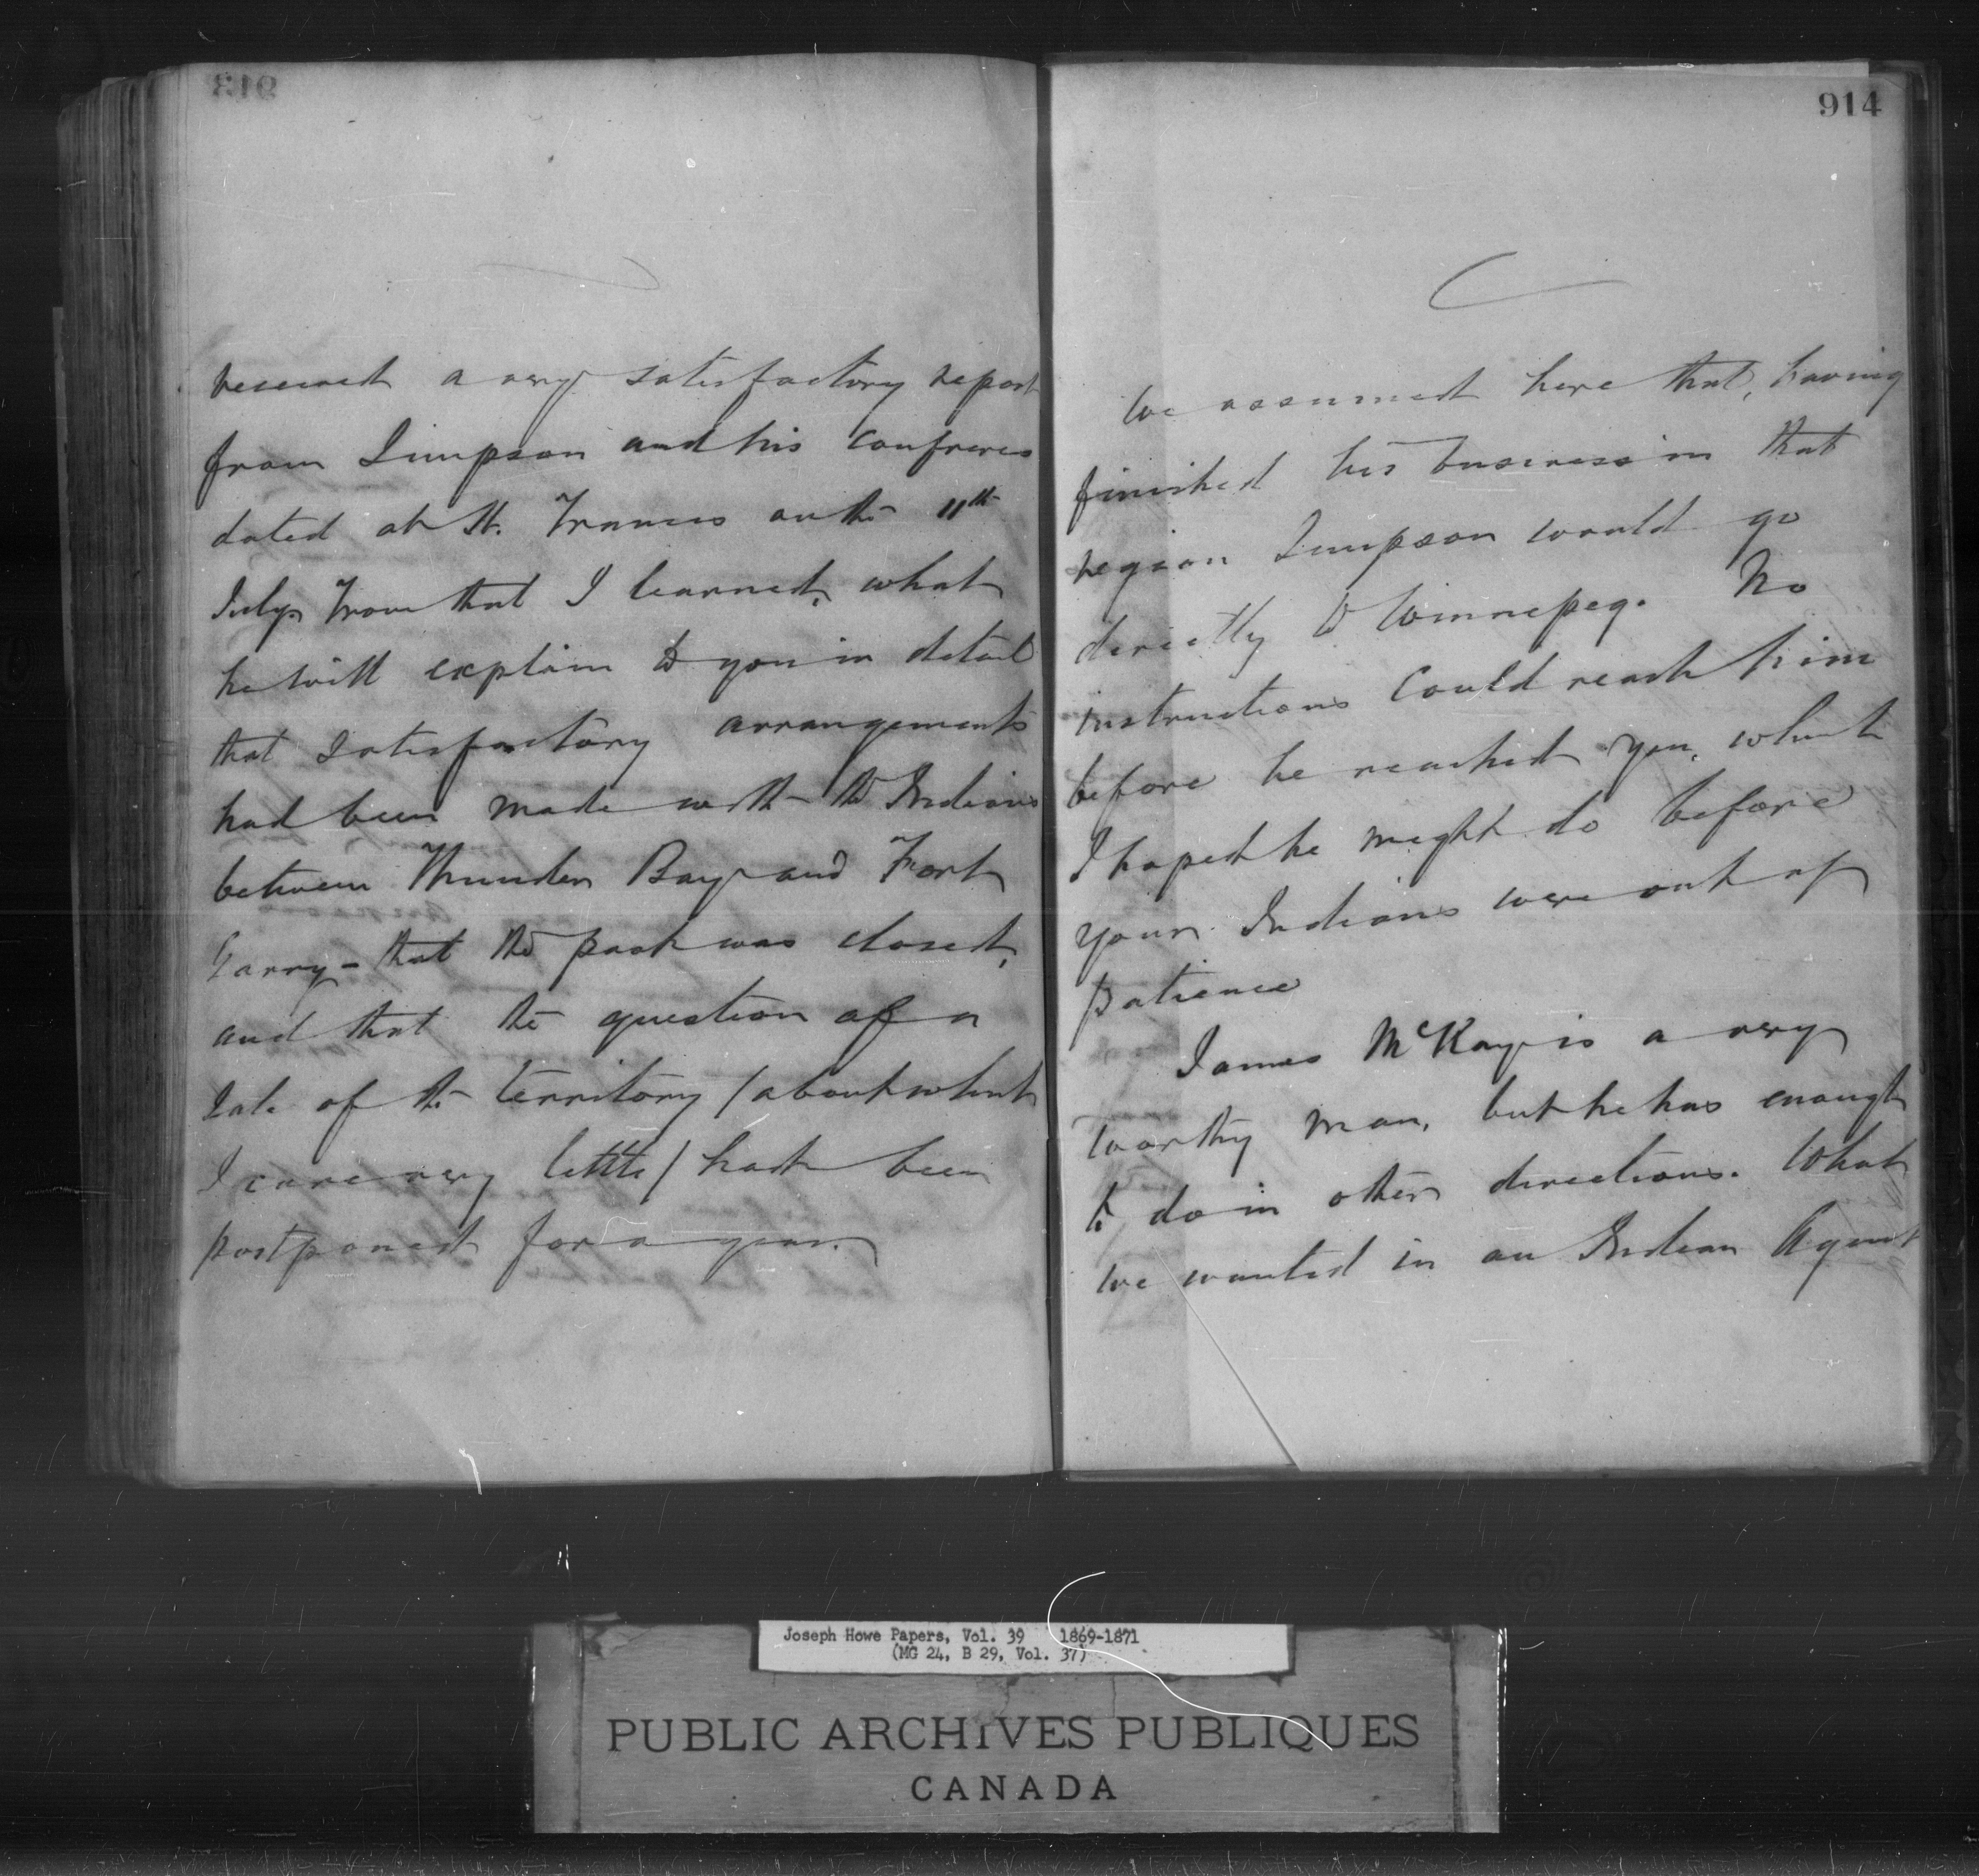 913
received a very satisfactory report
from Simpson and his confreres
dated at St. Frances on the 11th
July. From that I learned, what
he will explain to you in detail
that satisfactory arrangements
had been made with the Indians
between Thunder Bay and Fort
Garry - that the pact was closed,
and that the question of a
sale of the Territory / about which
I care very little / had been
postponed for a year.
914
We assumed here that, having
finished his business in that
region Simpson would go
directly to Winnepeg. No
instructions could reach him
before he reached you, which
I hoped he might do before
your Indians were out of
patience
James McKay is a very
worthy man, but he has enough
to do in other directions. What
we wanted in an Indian Agent
Joseph Howe Papers, Vol. 39 1869-1871
(MG 24, B 29, Vol. 37)
PUBLIC ARCHIVES PUBLIQUES
CANADA